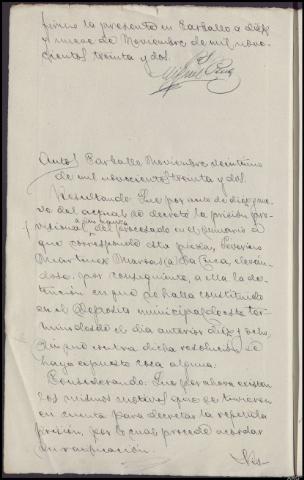 firmo la presente en Carballo a diez
y nueve de Noviembre de mil nove-
cientos treinta y dos.
Auto. Carballo Noviembre veintiuno
de mil novecientos treinta y dos.
Resultando: Que por auto de diez y nue-
ve del actual se decretó la prisión pro-
visional sin fianza del procesado en el sumario a
que corresponde esta pieza,
Martínez (a) Da Cuca, eleván-
dose, por consiguiente, a ella la de-
tención en que se halla constituido
en el Depósito municipal de este tér-
mino desde el día anterior diez y ocho,
sin que contra dicha resolución se
haya expuesto cosa alguna.
Considerando: Que por ahora existen
los mismos motivos que se tuvieron
en cuenta para decretar la repetida
prisión, por lo cual procede acordar
su ratificación.